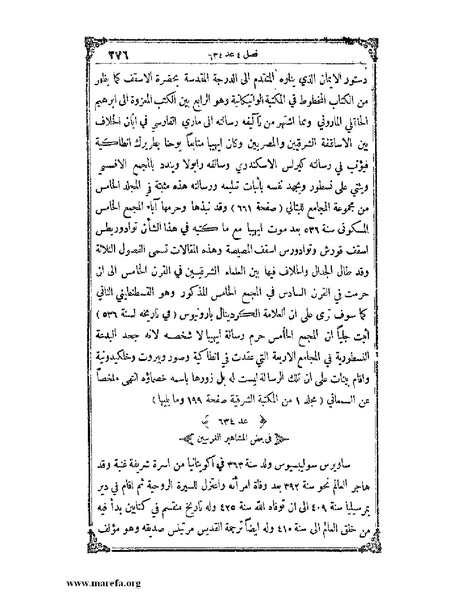 ٣٧٦ فصل ٤ عد ٦٣٤
دستور الايمان الذي يتلوه المتقدم الى الدرجة المقدسة بحضرة الاسقف كما يظهر
من الكتاب المخطوط في المكتبة الواتيكانية وهو الرابع بين الكتب المعزوة الى ابرهيم
الحاقلي الماروني ومما اشتهر من تآليفه رسالته الى ماري الفارسي في ابان الخلاف
بين الاساقفة الشرقيين والمصريين وكان ايهيبا متابعاً يوحنا بطريرك انطاكية
فيؤنب في رسالته كيرلس الاسكندري وسالفه رابولا ويندد بالمجمع الافسسي
ويثني على نسطور ويجهد نفسه باثبات تعليمه ورسالته هذه مثبتة في المجلد الخامس
من مجموعة المجامع للبتالي (صفحة ٦٦١) وقد نبذها وحرمها آباء المجمع الخامس
المسكوني سنة ٥٣٦ بعد موت ايهيبا مع ما كتبه في هذا الشأن توادوريطس
اسقف قورش وتوادورس اسقف المصيصة وهذه المقالات تسمى الفصول الثلاثة
وقد طال الجدال والخلاف فيها بين العلماء الشرقيين في القرن الخامس الى ان
حرمت في القرن السادس في المجمع الخامس المذكور وهو القسطنطيني الثاني
كما سوف ترى على ان العلامة الكردينال بارونيوس (في تاريخه لسنة ٥٣٦)
اثبت جلياً ان المجمع الخامس حرم رسالة ايهيبا لا شخصه لانه جحد البدعة
النسطورية في المجامع الاربعة التي عقدت في انطاكية وصور وبيروت وخلكيدونية
واقام بينات على ان تلك الرسالة ليست له بل زورها باسمه خصماؤه انتهى ملخصاً
عن السمعاني (مجلد ١ من المكتبة الشرقية صفحة ١٩٩ وما يليها)
عد ٦٣٤
في بعض المشاهير الغربيين
ساويرس سولبيسيوس ولد سنة ٣٦٣ في اكويتانيا من اسرة شريفة غنية وقد
هاجر العالم نحو سنة ٣٩٢ بعد وفاة امرأته واعتزل للسيرة الروحية ثم اقام في دير
بمرسيليا سنة ٤٠٩ الى ان توفاه الله سنة ٤٢٥ وله تاريخ منقسم في كتابين بدأ فيه
من خلق العالم الى سنة ٤١٠ وله ايضاً ترجمة القديس مرتينس صديقه وهو مؤلف
www.marefa.org